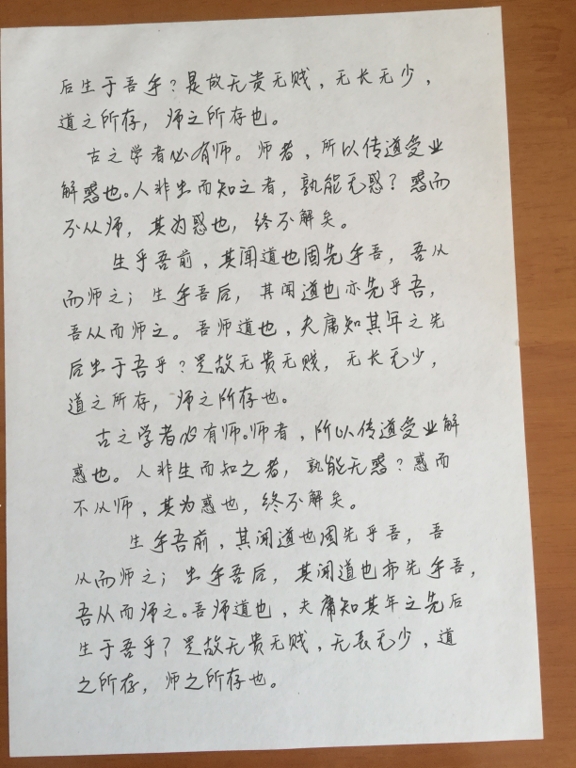 后生于吾乎？是故无贵无贱，无长无少，
道之所存，师之所存也。
古之学者必有师。师者，所以传道受业
解惑也。人非生而知之者，孰能无惑？惑而
不从师，其为惑也，终不解矣。
生乎吾前，其闻道也固先乎吾，吾从
而师之；生乎吾后，其闻道也亦先乎吾，
吾从而师之。吾师道也，夫庸知其年之先
后生于吾乎？是故无贵无贱，无长无少，
道之所存，师之所存也。
古之学者必有师。师者，所以传道受业解
惑也。人非生而知之者，孰能无惑？惑而
不从师，其为惑也，终不解矣。
生乎吾前，其闻道也固先乎吾，吾
从而师之；生乎吾后，其闻道也亦先乎吾，
吾从而师之。吾师道也，夫庸知其年之先后
生于吾乎？是故无贵无贱，无长无少，道
之所存，师之所存也。